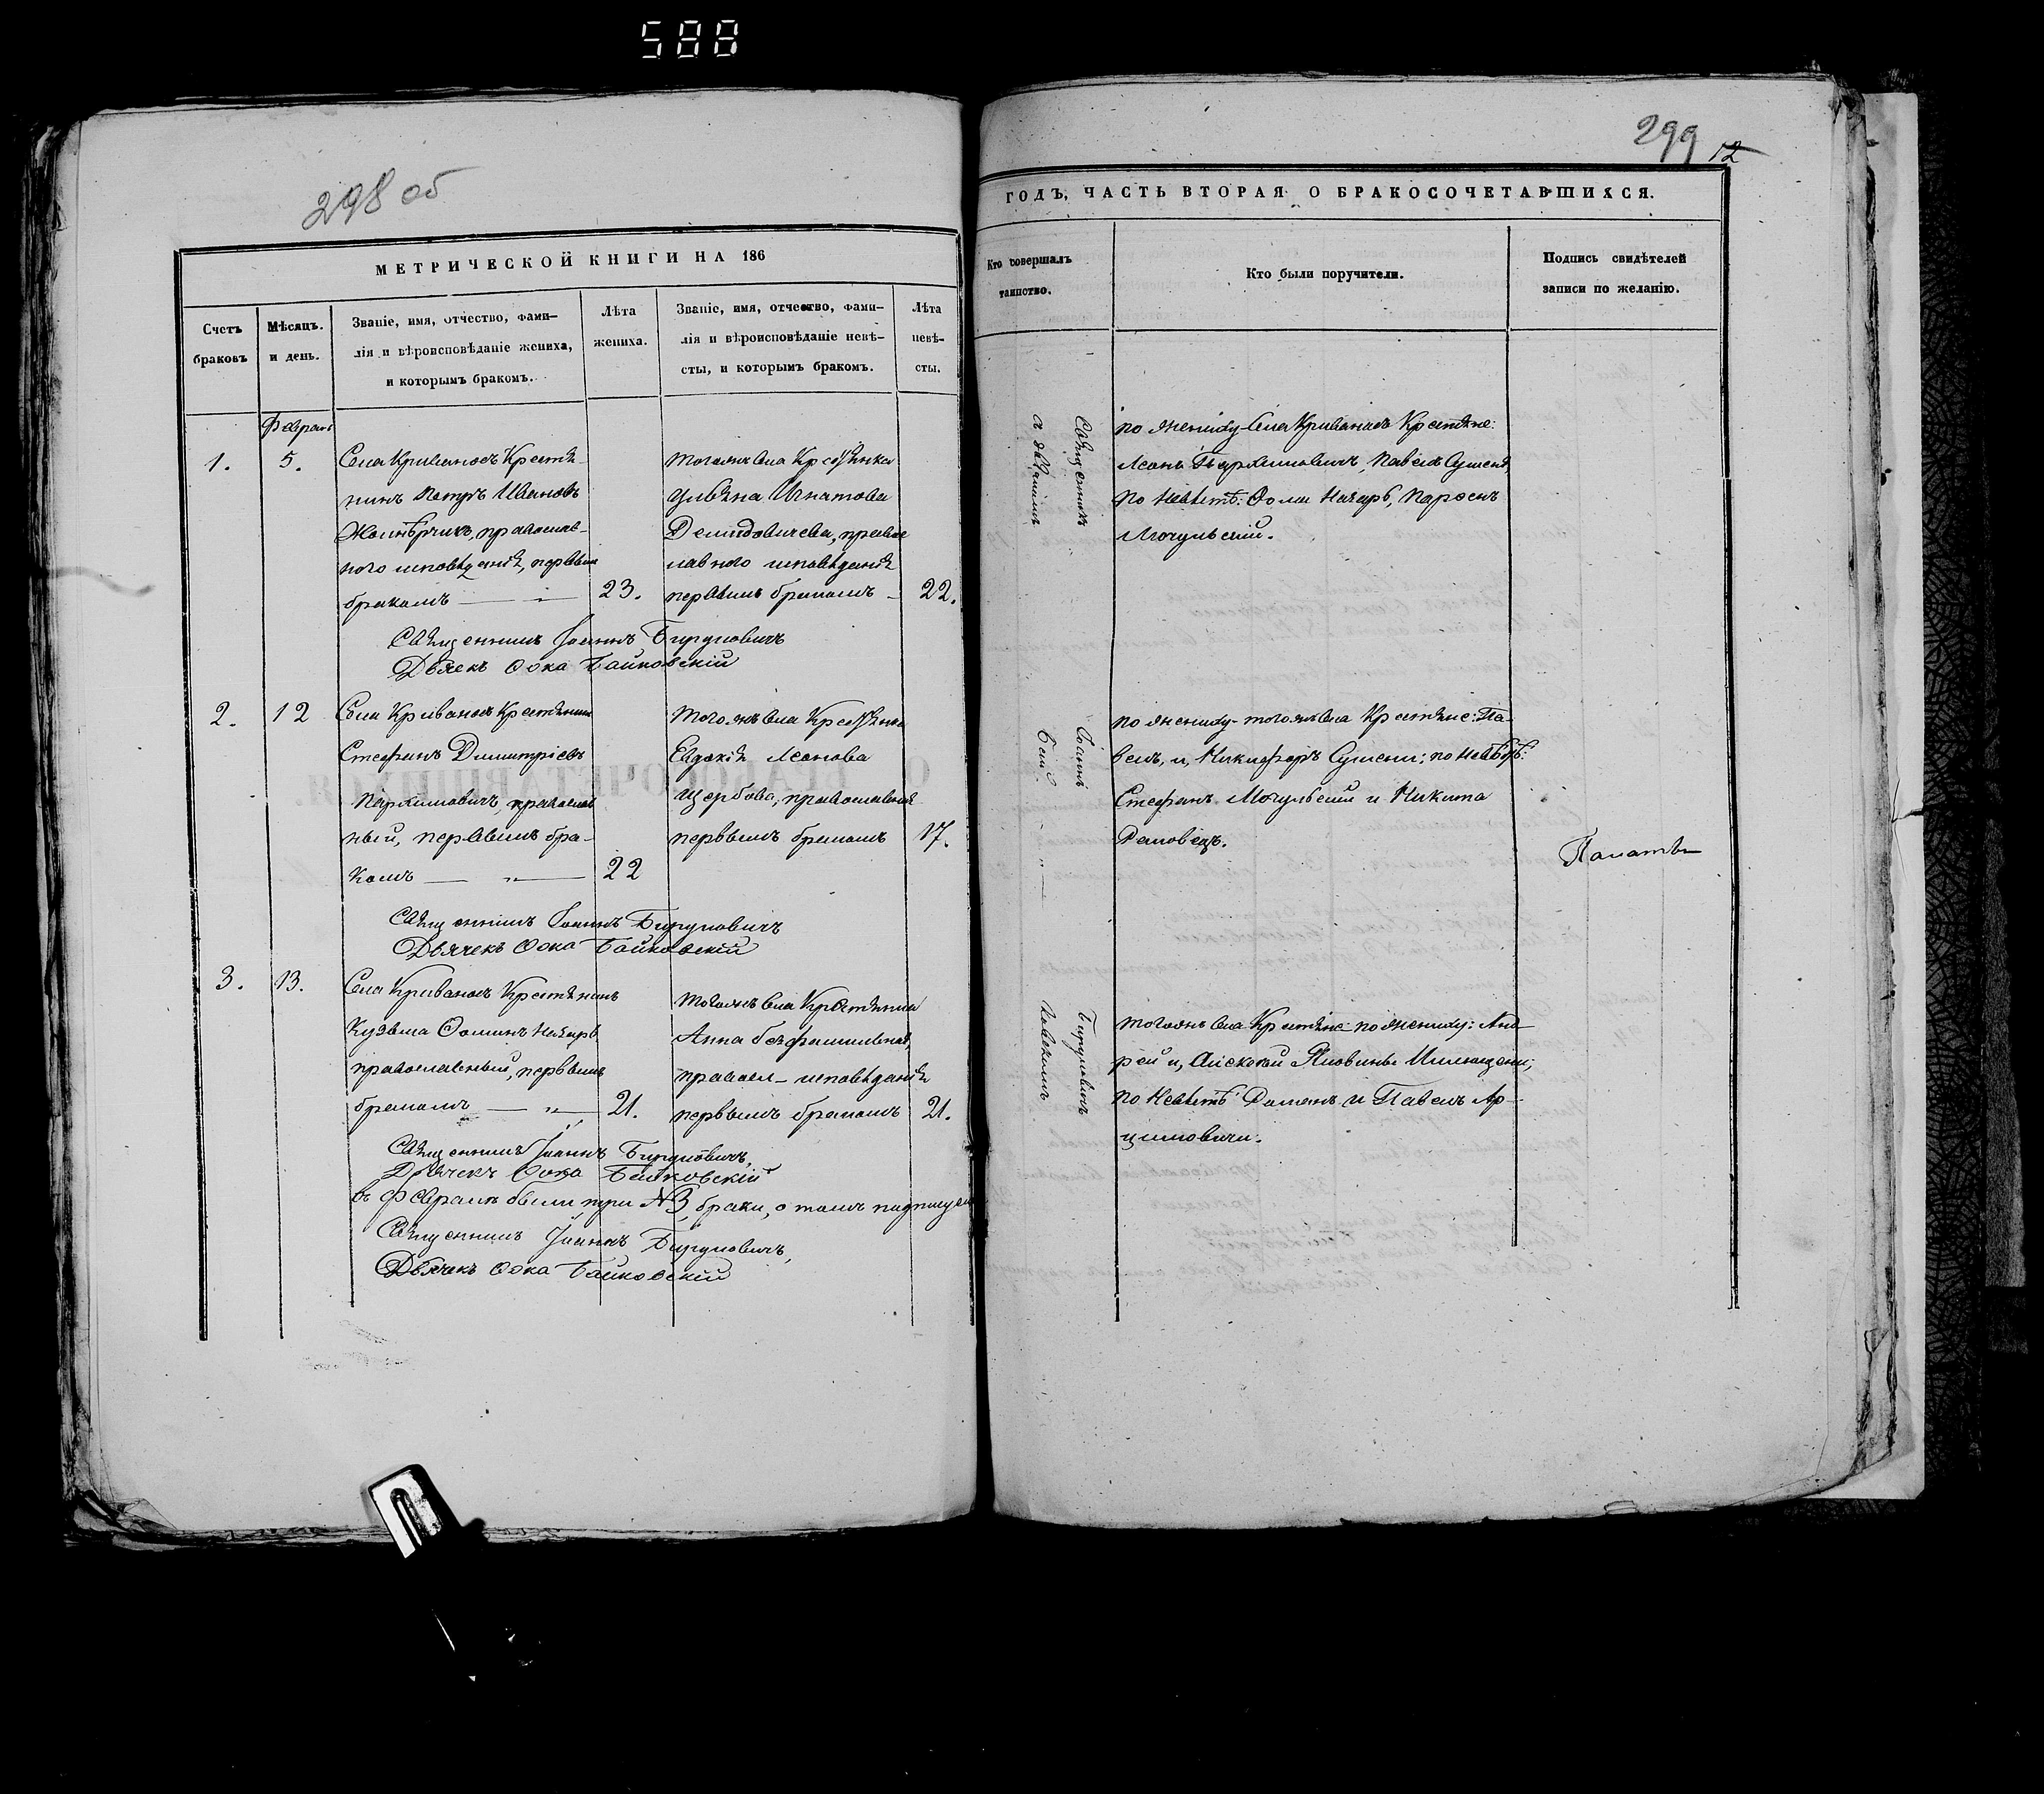 588
298 об
МЕТРИЧЕСКОЙ КНИГИ НА 186
Счетъ браковъ
Мѣсяцъ. и день.
Званіе, имя, отчество, фами-
лія и вѣроисповѣданіе жениха,
и которымъ бракомъ.
Лѣта жениха.
Званіе, имя, отчество, фами-
лія и вѣроисповѣданіе невѣ-
сты, и которымъ бракомъ.
Лѣта невѣ-
сты.
Февраль
1. 5.
Села Кривановъ Крестья-
нинъ Петръ Ивановъ
православ-
ного исповѣданія, первымъ
бракомъ 23.
тогожъ села Крестьянка
Ульяна Игнатова
Демидовичева, правос
лавного исповѣданія
первымъ бракомъ 22.
Священникъ Іоаннъ
Дьячекъ Фока Байковскій
2. 12
Села Кривановъ Крестьянинъ
Стефанъ Димитріевъ
Пархимовичъ, православ
ный, первымъ бра-
комъ 22
тогожъ села Крестьянка
Евдокія Леонова
Щербова, православная
первымъ бракомъ 17.
Священникъ Іоаннъ
Дьячекъ Фока Байковскій
3. 13.
Села Кривановъ Крестьянинъ
Кузьма Фоминъ Назаръ
православный, первымъ
бракомъ 21.
тогожъ села Крестьянка
Анна безфамильная,
правосл- исповѣданія
первымъ бракомъ 21.
Священникъ Іоаннъ
Дьячекъ Фока Байковскій
въ Февралѣ были три №3, браки, о томъ подписуемъ
Священникъ Іоаннъ
Дьячекъ Фока Байковскій
299 12
ГОДЪ, ЧАСТЬ ВТОРАЯ О БРАКОСОЧЕТАВШИХСЯ.
Кто совершалъ
таинство.
Кто были поручители.
Подпись свидѣтелей
записи по желанію.
Священникъ Іоаннъ
по жениху села Кривановъ Крестьяне:
Леонъ Пархимовичъ, Павелъ Сушеня
по невѣстѣ: Фома Назаръ, Парфенъ
Могульскій.
по жениху тогожъ села Крестьяне: Па-
велъ, и, Никифоръ Сушени; по невѣстѣ:
Стефанъ Могульскій и Никита
тогожъ села Крестьяне по жениху: Анд
рей и, Алексѣй
по невѣстѣ: Романъ и Павелъ Ар-
цимовичи.